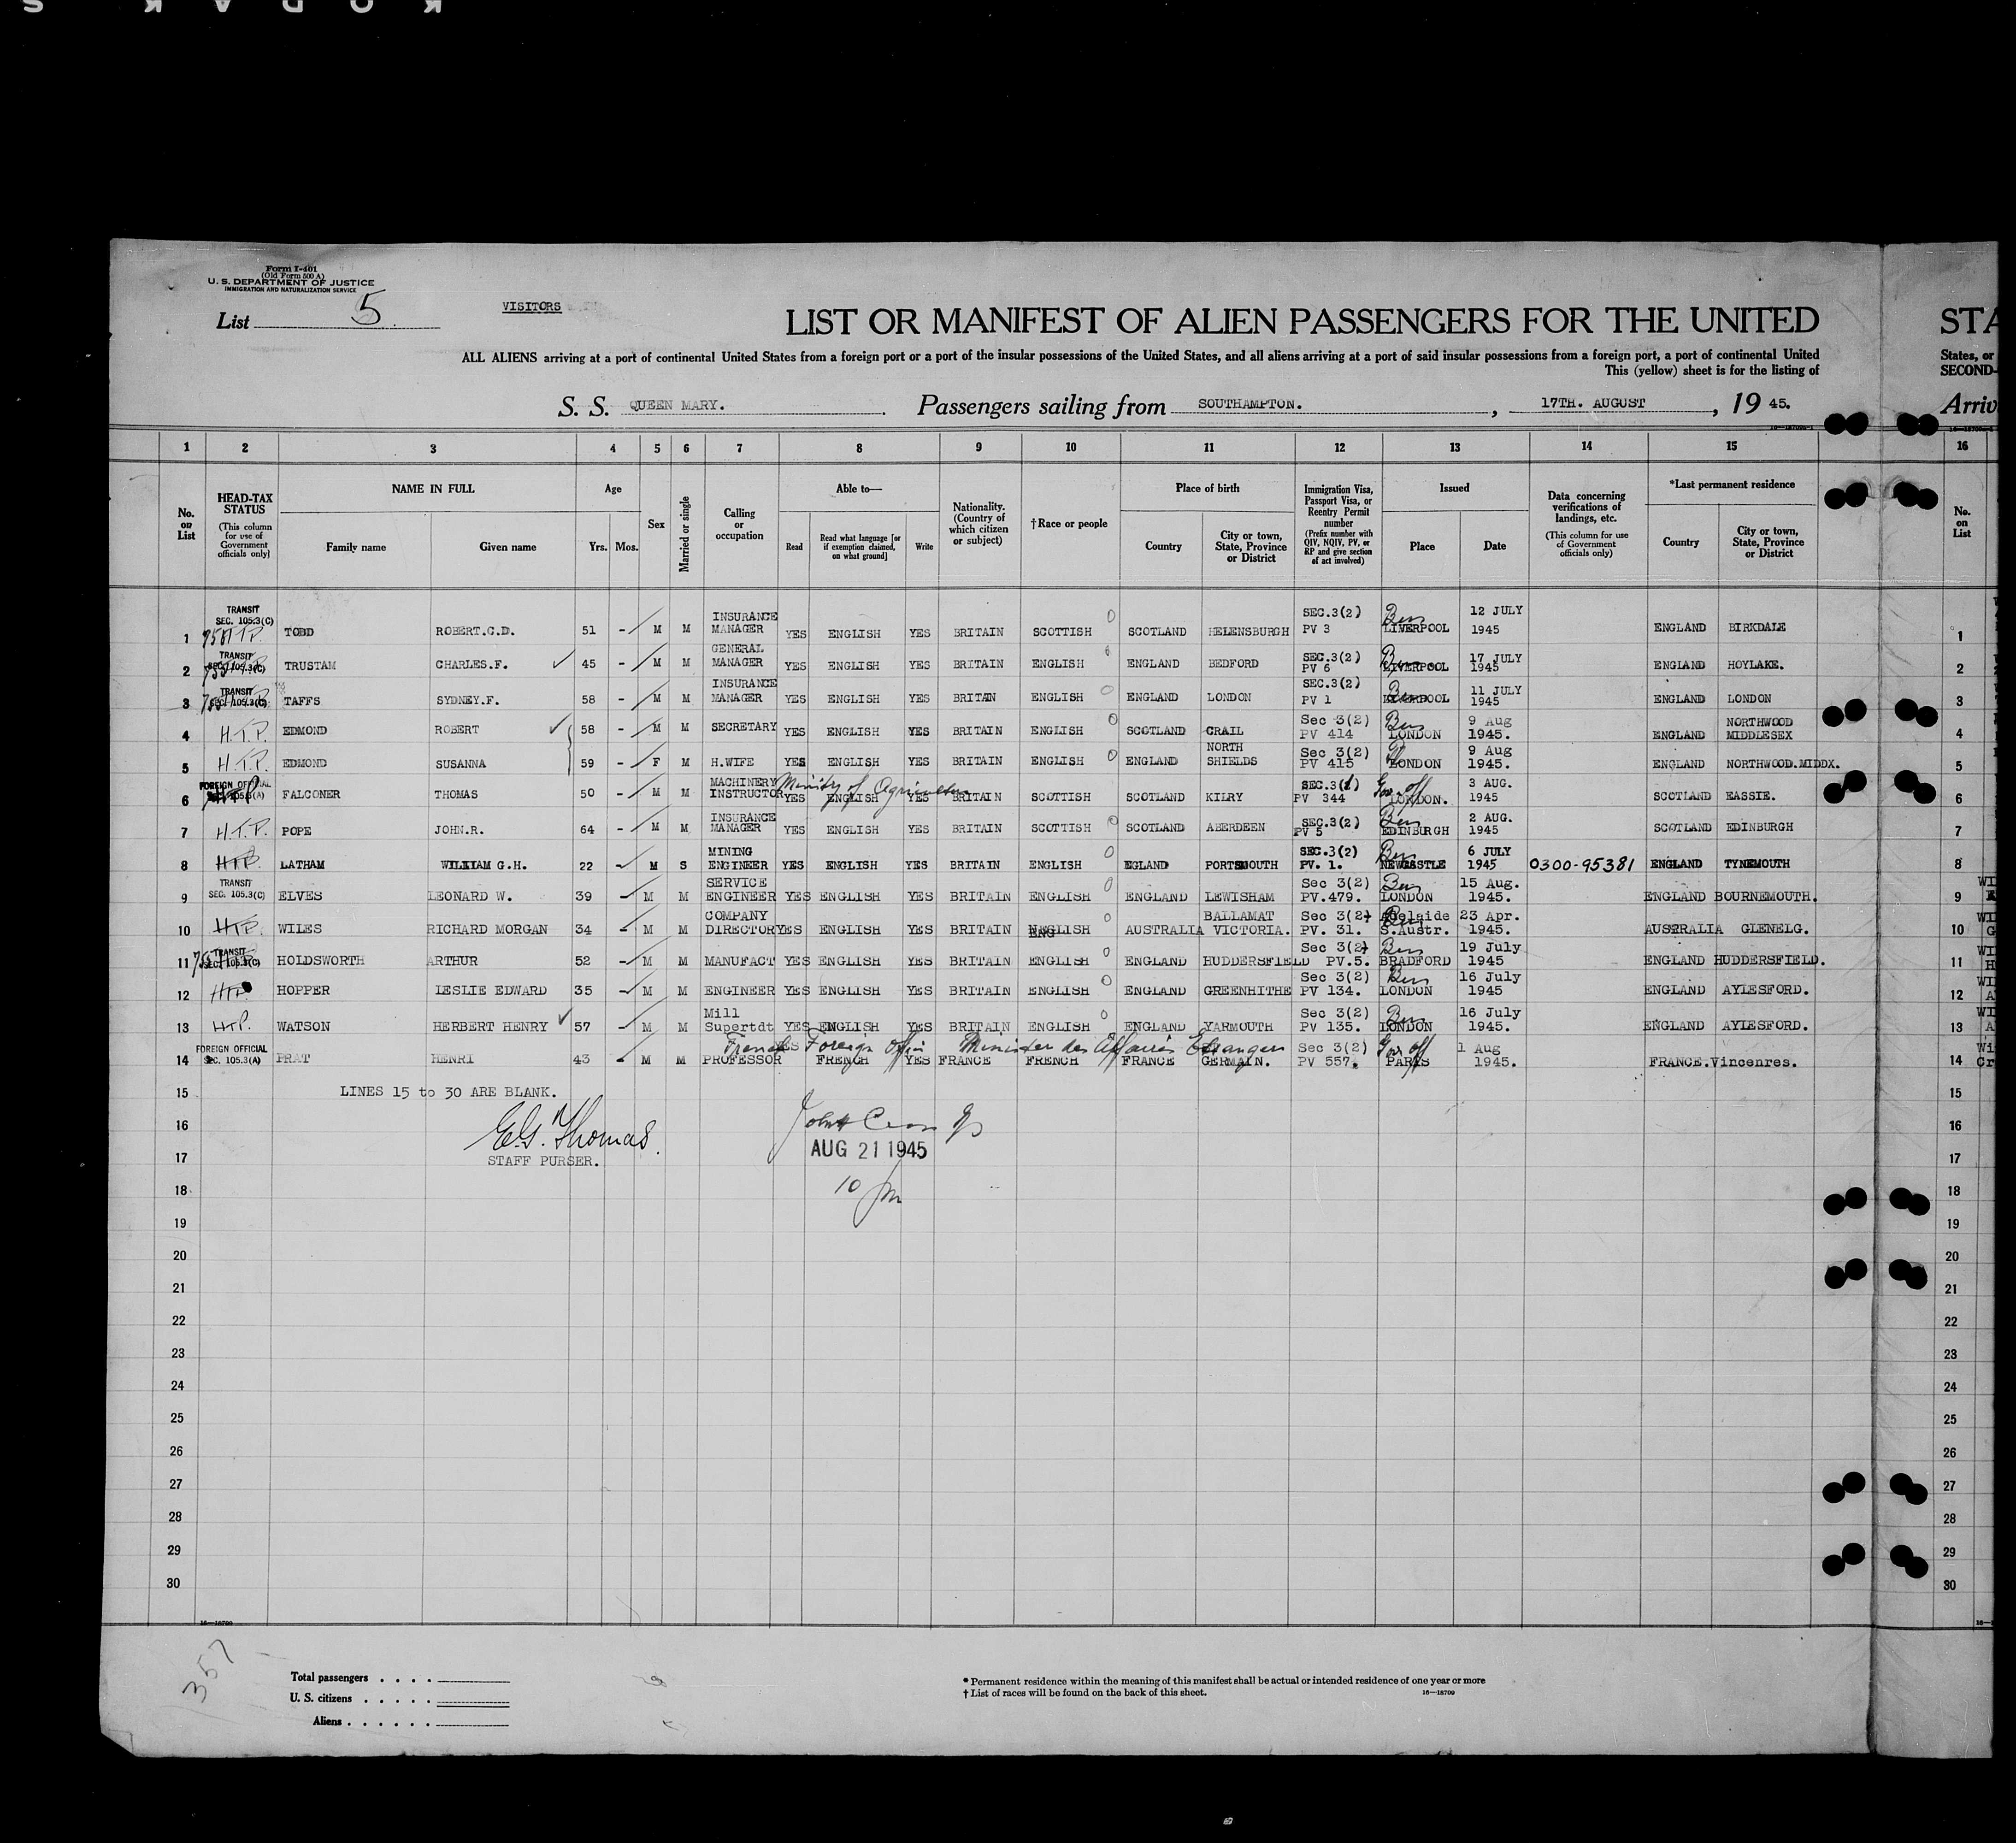 KODAK S
Form I-401
(Old Form 500 A)
U. S. DEPARTMENT OF JUSTICE
IMMIGRATION AND NATURALIZATION SERVICE
List 5
VISITORS
LIST OR MANIFEST OF ALIEN PASSENGERS FOR THE UNITED STA
ALL ALIENS arriving at a port of continental United States from a foreign port or a port of the insular possessions of the United States, and all aliens arriving at a port of said insular possessions from a foreign port, a port of continental United States, or
This (yellow) sheet is for the listing of SECOND-
S. S. QUEEN MARY. Passengers sailing from SOUTHAMPTON. , 17TH. AUGUST , 19 45. Arriv
1 2 3 4 5 6 7 8 9 10 11 12 13 14 15 16
No. on List
HEAD-TAX STATUS (This column for use of Government officials only)
NAME IN FULL Family name Given name
Age Yrs. Mos.
Sex
Married or single
Calling or occupation
Able to— Read Read what language [or if exemption claimed, on what ground] Write
Nationality. (Country of which citizen or subject)
†Race or people
Place of birth Country City or town, State, Province or District
Immigration Visa, Passport Visa, or Reentry Permit number (Prefix number with QIV, NQIV, PV, or RP and give section of act involved)
Issued Place Date
Data concerning verifications of landings, etc. (This column for use of Government officials only)
*Last permanent residence Country City or town, State, Province or District
No. on List
1 TRANSIT SEC. 105.3(C) TODD ROBERT.C.D. 51 - M M INSURANCE MANAGER YES ENGLISH YES BRITAIN SCOTTISH SCOTLAND HELENSBURGH SEC.3(2) PV 3 LIVERPOOL 12 JULY 1945 ENGLAND BIRKDALE 1
2 TRANSIT SEC. 105.3(C) TRUSTAM CHARLES.F. 45 - M M GENERAL MANAGER YES ENGLISH YES BRITAIN ENGLISH ENGLAND BEDFORD SEC.3(2) PV 6 LIVERPOOL 17 JULY 1945 ENGLAND HOYLAKE. 2
3 TRANSIT SEC. 105.3(C) TAFFS SYDNEY.F. 58 - M M INSURANCE MANAGER YES ENGLISH YES BRITAN ENGLISH ENGLAND LONDON SEC.3(2) PV 1 LIVERPOOL 11 JULY 1945 ENGLAND LONDON 3
4 H.T.P. EDMOND ROBERT 58 - M M SECRETARY YES ENGLISH YES BRITAIN ENGLISH SCOTLAND CRAIL Sec 3(2) PV 414 LONDON 9 Aug 1945. ENGLAND NORTHWOOD MIDDLESEX 4
5 H.T.P. EDMOND SUSANNA 59 - F M H.WIFE YES ENGLISH YES BRITAIN ENGLISH ENGLAND NORTH SHIELDS Sec 3(2) PV 415 LONDON 9 Aug 1945. ENGLAND NORTHWOOD.MIDDX. 5
6 FOREIGN OFFICIAL SEC. 105.3(A) FALCONER THOMAS 50 - M M MACHINERY INSTRUCTOR Ministry of Agriculture YES ENGLISH YES BRITAIN SCOTTISH SCOTLAND KILRY SEC.3(1) PV 344 Gov. off LONDON. 3 AUG. 1945 SCOTLAND EASSIE. 6
7 H.T.P. POPE JOHN.R. 64 - M M INSURANCE MANAGER YES ENGLISH YES BRITAIN SCOTTISH SCOTLAND ABERDEEN SEC.3(2) PV 5 EDINBURGH 2 AUG. 1945 SCOTLAND EDINBURGH 7
8 HTP. LATHAM WILLIAM G.H. 22 - M S MINING ENGINEER YES ENGLISH YES BRITAIN ENGLISH EGLAND PORTSMOUTH SEC.3(2) PV. 1. NEWCASTLE 6 JULY 1945 0300-95381 ENGLAND TYNEMOUTH 8
9 TRANSIT SEC. 105.3(C) ELVES LEONARD W. 39 - M M SERVICE ENGINEER YES ENGLISH YES BRITAIN ENGLISH ENGLAND LEWISHAM Sec 3(2) PV.479. LONDON 15 Aug. 1945. ENGLAND BOURNEMOUTH. 9
10 HTP. WILES RICHARD MORGAN 34 - M M COMPANY DIRECTOR YES ENGLISH YES BRITAIN ENGLISH AUSTRALIA BALLAMAT VICTORIA. Sec 3(2) PV. 31. Adelaide S.Austr. 23 Apr. 1945. AUSTRALIA GLENELG. 10
11 TRANSIT SEC. 105.3(C) HOLDSWORTH ARTHUR 52 - M M MANUFACT YES ENGLISH YES BRITAIN ENGLISH ENGLAND HUDDERSFIELD Sec 3(2) PV.5. BRADFORD 19 July 1945 ENGLAND HUDDERSFIELD. 11
12 HTP HOPPER LESLIE EDWARD 35 - M M ENGINEER YES ENGLISH YES BRITAIN ENGLISH ENGLAND GREENHITHE Sec 3(2) PV 134. LONDON 16 July 1945 ENGLAND AYLESFORD. 12
13 HTP. WATSON HERBERT HENRY 57 - M M Mill Supertdt YES ENGLISH YES BRITAIN ENGLISH ENGLAND YARMOUTH Sec 3(2) PV 135. LONDON 16 July 1945. ENGLAND AYLESFORD. 13
French Foreign Office Minister des Affaires Etrangers
14 FOREIGN OFFICIAL SEC. 105.3(A) PRAT HENRI 43 - M M PROFESSOR YES FRENCH YES FRANCE FRENCH FRANCE GERMAIN. Sec 3(2) PV 557. Gov. off PARIS 1 Aug 1945. FRANCE.Vincenres. 14
15 LINES 15 to 30 ARE BLANK. 15
16 E.G. Thomas. 16
17 STAFF PURSER. AUG 21 1945 17
18 10 pm 18
19 19
20 20
21 21
22 22
23 23
24 24
25 25
26 26
27 27
28 28
29 29
30 30
16—18700
357
Total passengers . . . .
U. S. citizens . . . . .
Aliens . . . . . .
* Permanent residence within the meaning of this manifest shall be actual or intended residence of one year or more
† List of races will be found on the back of this sheet.
16—18700